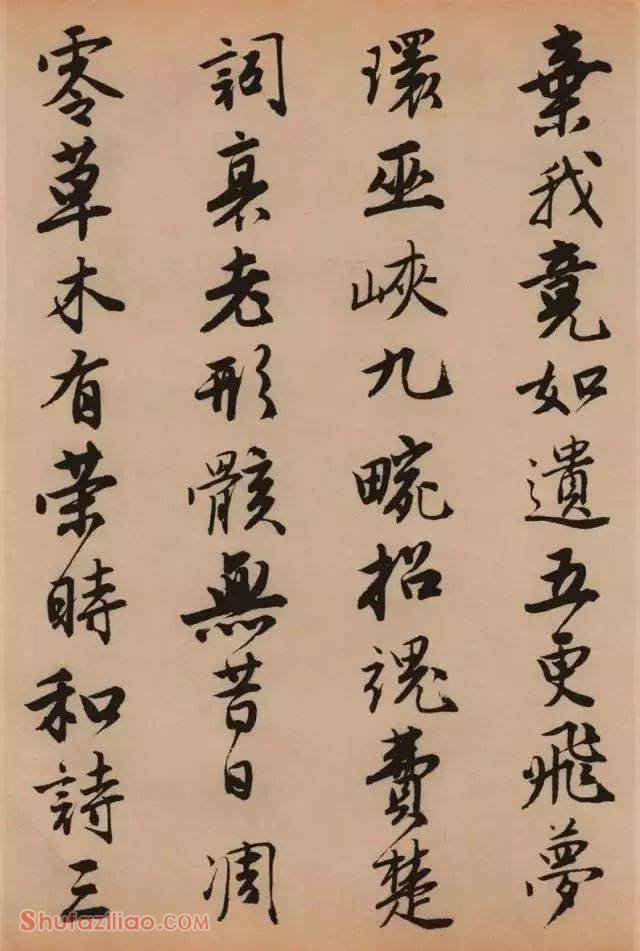 棄我竟如遺五更飛夢
環巫峽九畹招魂費楚
詞衰老形骸無昔日凋
零草木有榮時和詩三
Shufaziliao.com